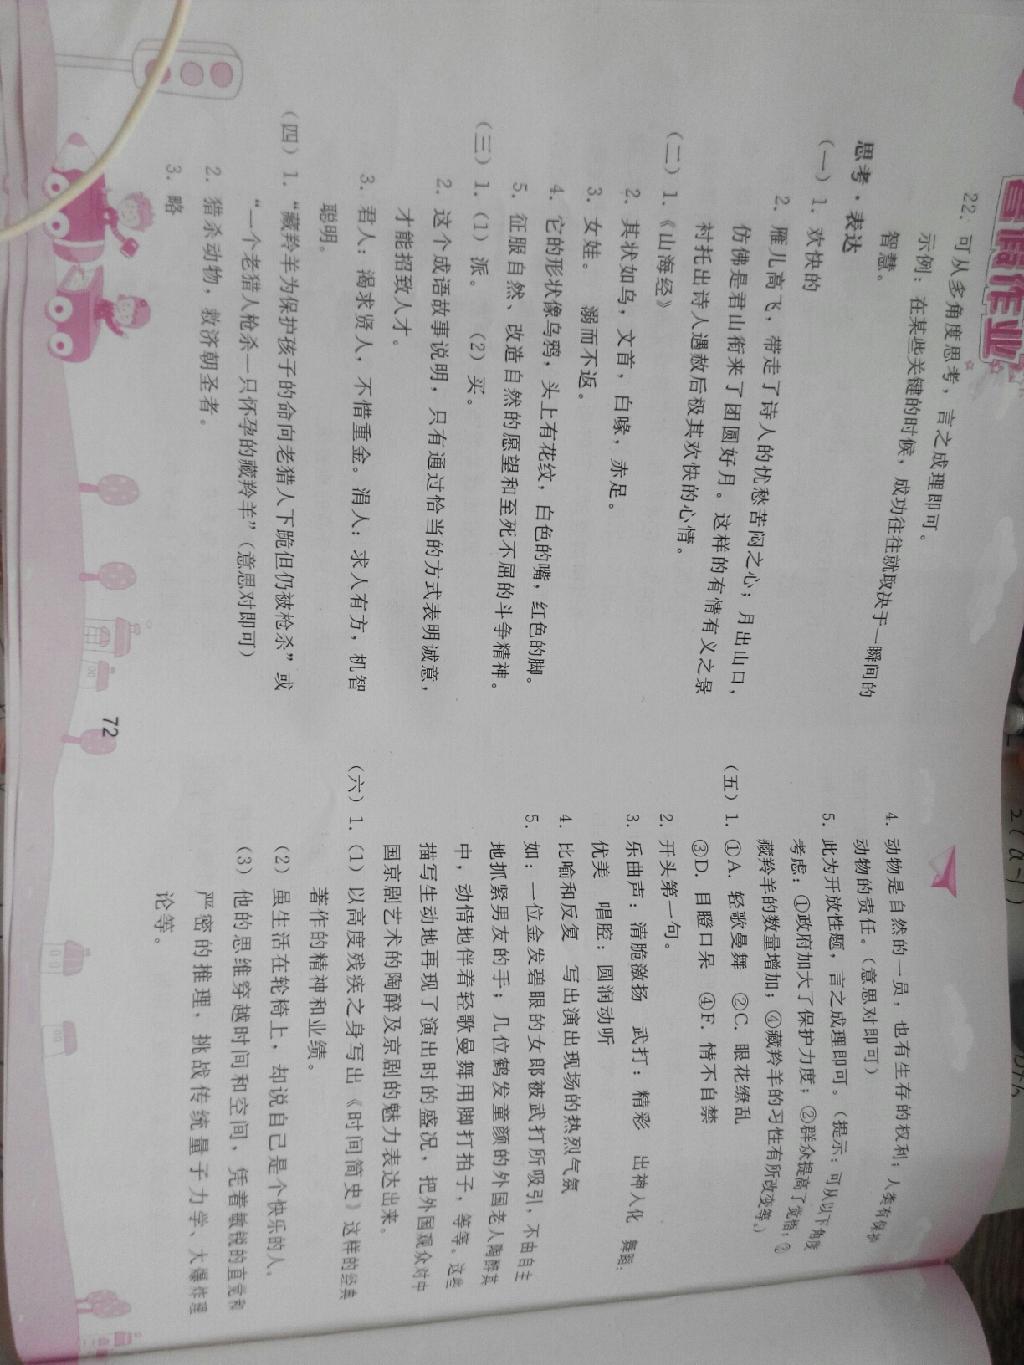 暑假作业
22. 可从多角度思考，言之成理即可。
示例：在某些关键的时候，成功往往就取决于一瞬间的
智慧。
思考·表达
（一）1. 欢快的
2. 雁儿高飞，带走了诗人的忧愁苦闷之心；月出山口，
仿佛是君山衔来了团圆好月。这样的有情有义之景
衬托出诗人遇赦后极其欢快的心情。
（二）1.《山海经》
2. 其状如乌，文首，白喙，赤足。
3. 女娃。 溺而不返。
4. 它的形状像乌鸦，头上有花纹，白色的嘴，红色的脚。
5. 征服自然、改造自然的愿望和至死不屈的斗争精神。
（三）1.（1）派。（2）买。
2. 这个成语故事说明，只有通过恰当的方式表明诚意，
才能招致人才。
3. 君人：渴求贤人，不惜重金。涓人：求人有方，机智
聪明。
（四）1.“藏羚羊为保护孩子的命向老猎人下跪但仍被枪杀”或
“一个老猎人枪杀一只怀孕的藏羚羊”（意思对即可）
2. 猎杀动物，救济朝圣者。
3. 略
72
4. 动物是自然的一员，也有生存的权利；人类有保护
动物的责任。（意思对即可）
5. 此为开放性题，言之成理即可。（提示：可从以下角度
考虑：①政府加大了保护力度；②群众提高了觉悟；③
藏羚羊的数量增加；④藏羚羊的习性有所改变等。）
（五）1. ①A. 轻歌曼舞 ②C. 眼花缭乱
③D. 目瞪口呆 ④F. 情不自禁
2. 开头第一句。
3. 乐曲声：清脆激扬 武打：精彩 出神入化 舞蹈：
优美 唱腔：圆润动听
4. 比喻和反复 写出演出现场的热烈气氛
5. 如：一位金发碧眼的女郎被武打所吸引，不由自主
地抓紧男友的手；几位鹤发童颜的外国老人陶醉其
中，动情地伴着轻歌曼舞用脚打拍子，等等。这些
描写生动地再现了演出时的盛况，把外国观众对中
国京剧艺术的陶醉及京剧的魅力表达出来。
（六）1.（1）以高度残疾之身写出《时间简史》这样的经典
著作的精神和业绩。
（2）虽生活在轮椅上，却说自己是个快乐的人。
（3）他的思维穿越时间和空间，凭着敏锐的直觉和
严密的推理，挑战传统量子力学、大爆炸理
论等。